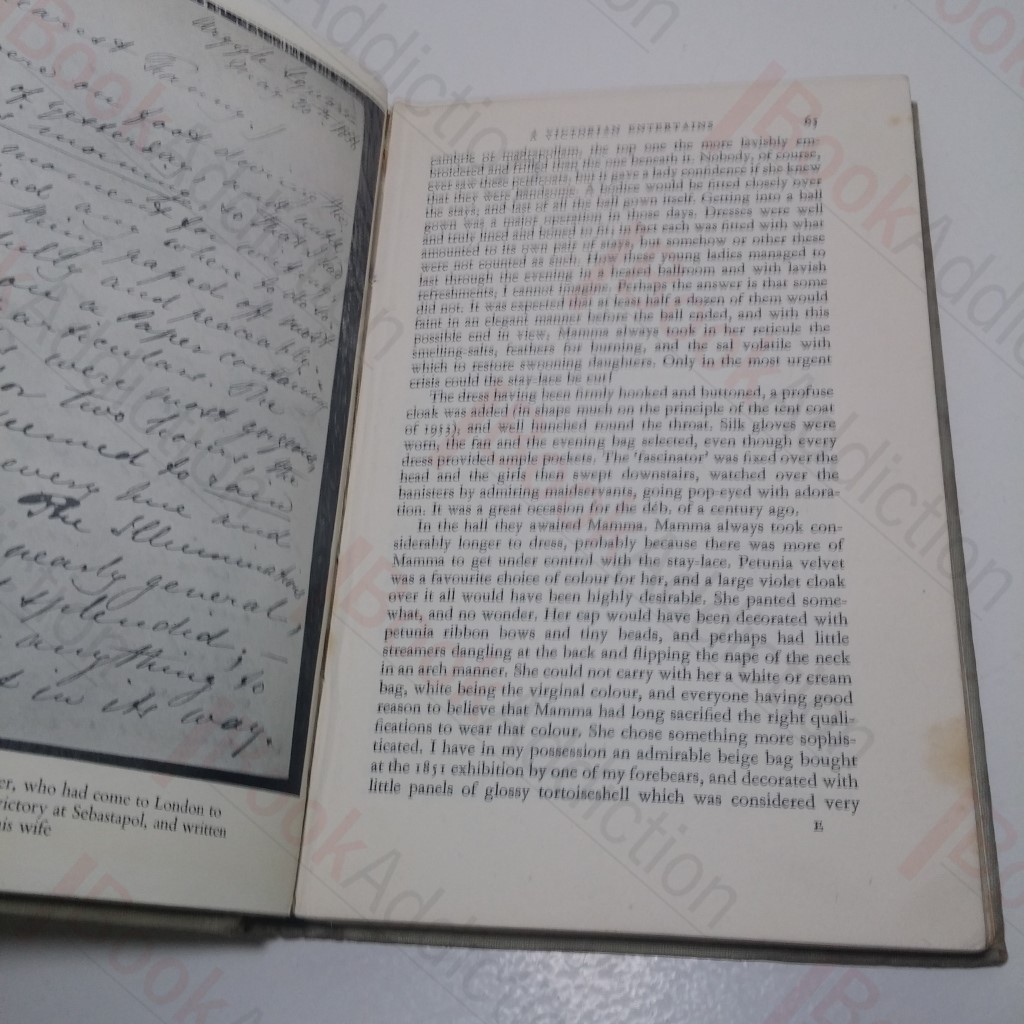 Argyle Square
dearest Fanny!
of yesterday
and peaceably
out a paper containing
particulars. The
were most gorgeous,
for two hours the
seemed to
every hue and
The Illuminations
nearly general,
splendid;
anything to
in its way.
er, who had come to London to
victory at Sebastapol, and written
his wife
A VICTORIAN ENTERTAINS 65
cambric or madapollam, the top one the more lavishly em-
broidered and frilled than the one beneath it. Nobody, of course,
ever saw these petticoats, but it gave a lady confidence if she knew
that they were handsome. A bodice would be fitted closely over
the stays, and last of all the ball gown itself. Getting into a ball
gown was a major operation in those days. Dresses were well
and truly lined and boned to fit; in fact each was fitted with what
amounted to its own pair of stays, but somehow or other these
were not counted as such. How these young ladies managed to
last through the evening in a heated ballroom and with lavish
refreshments, I cannot imagine. Perhaps the answer is that some
did not. It was expected that at least half a dozen of them would
faint in an elegant manner before the ball ended, and with this
possible end in view, Mamma always took in her reticule the
smelling-salts, feathers for burning, and the sal volatile with
which to restore swooning daughters. Only in the most urgent
crisis could the stay-lace be cut!
The dress having been firmly hooked and buttoned, a profuse
cloak was added (in shape much on the principle of the tent coat
of 1953), and well hunched round the throat. Silk gloves were
worn, the fan and the evening bag selected, even though every
dress provided ample pockets. The 'fascinator' was fixed over the
head and the girls then swept downstairs, watched over the
banisters by admiring maidservants, going pop-eyed with adora-
tion. It was a great occasion for the déb. of a century ago.
In the hall they awaited Mamma. Mamma always took con-
siderably longer to dress, probably because there was more of
Mamma to get under control with the stay-lace. Petunia velvet
was a favourite choice of colour for her, and a large violet cloak
over it all would have been highly desirable. She panted some-
what, and no wonder. Her cap would have been decorated with
petunia ribbon bows and tiny beads, and perhaps had little
streamers dangling at the back and flipping the nape of the neck
in an arch manner. She could not carry with her a white or cream
bag, white being the virginal colour, and everyone having good
reason to believe that Mamma had long sacrified the right quali-
fications to wear that colour. She chose something more sophis-
ticated. I have in my possession an admirable beige bag bought
at the 1851 exhibition by one of my forebears, and decorated with
little panels of glossy tortoiseshell which was considered very
E
BookAddiction